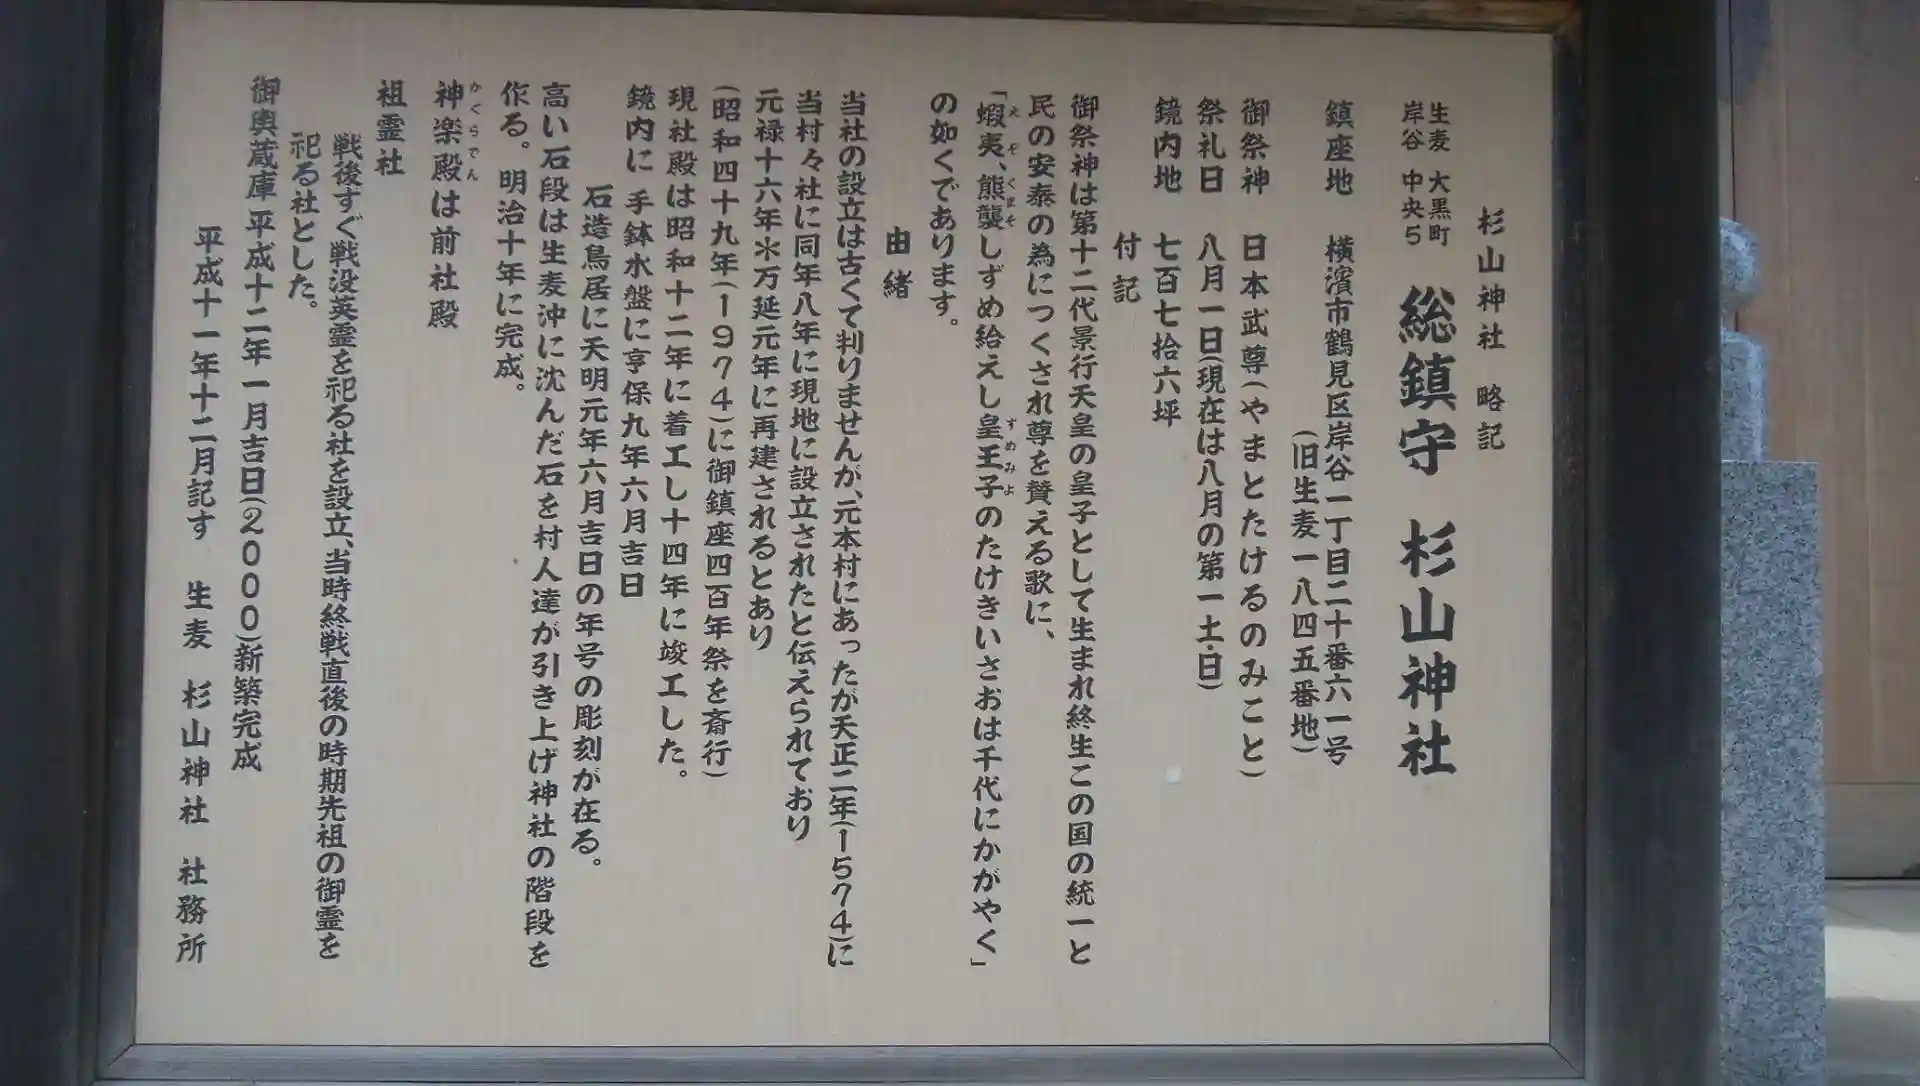 杉山神社 略記
生麦 大黒町
岸谷 中央5
総鎮守 杉山神社
鎮座地 横濱市鶴見区岸谷一丁目二十番六一号
(旧生麦一八四五番地)
御祭神 日本武尊(やまとたけるのみこと)
祭礼日 八月一日(現在は八月の第一土・日)
鏡内地 七百七拾六坪
付記
御祭神は第十二代景行天皇の皇子として生まれ終生この国の統一と
民の安泰の為につくされ尊を賛える歌に、
「蝦夷、熊襲しずめ給えし皇王子のたけきいさおは千代にかがやく」
えぞ くまそ すめみよ
の如くであります。
由緒
当社の設立は古くて判りませんが、元本村にあったが天正二年(1574)に
当村々社に同年八年に現地に設立されたと伝えられており
元禄十六年水万延元年に再建されるとあり
(昭和四十九年(1974)に御鎮座四百年祭を斎行)
現社殿は昭和十二年に着工し十四年に竣工した。
鏡内に 手鉢水盤に亨保九年六月吉日
石造鳥居に天明元年六月吉日の年号の彫刻が在る。
高い石段は生麦沖に沈んだ石を村人達が引き上げ神社の階段を
作る。明治十年に完成。
神楽殿は前社殿
かぐらでん
祖霊社
戦後すぐ戦没英霊を祀る社を設立、当時終戦直後の時期先祖の御霊を
祀る社とした。
御輿蔵庫 平成十二年一月吉日(2000)新築完成
平成十一年十二月記す 生麦 杉山神社 社務所